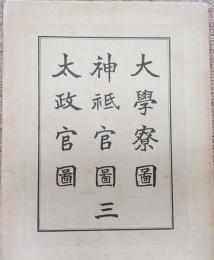 大學寮圖
神祇官圖 三
太政官圖